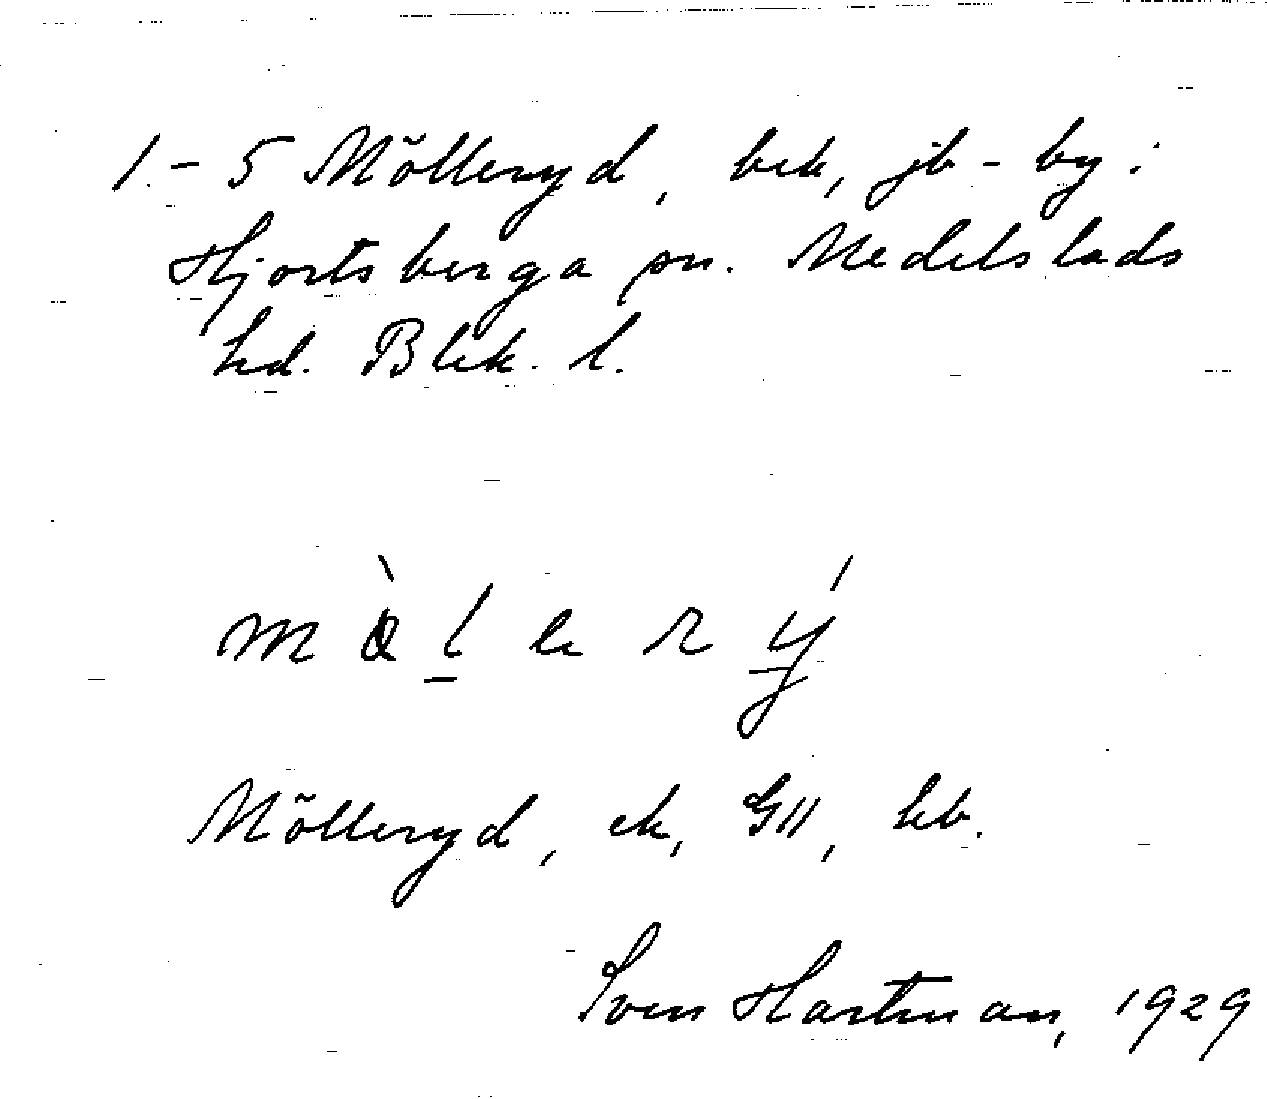 1.-5 Mölleryd, bek, jb-by i
Hjortsberga sn. Medelstads
hd. Blek. l.
m ö̀ l e r ý
Mölleryd, ek, GII, hb.
Sven Hartman, 1929